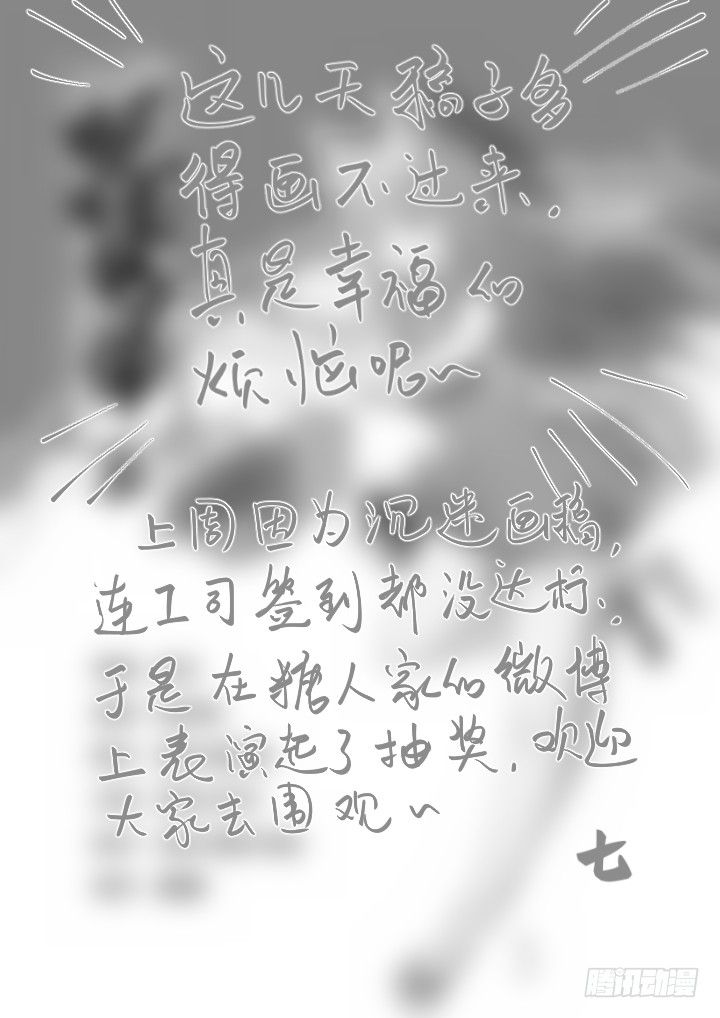 这几天稿子多
得画不过来，
真是幸福的
烦恼呢～
上周因为沉迷画稿，
连工司签到都没达标..
于是在糖人家的微博
上表演起了抽奖，欢迎
大家去围观～
七
腾讯动漫